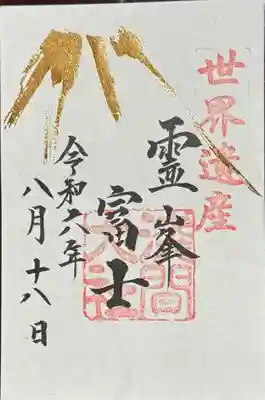 世界遺産
霊峯
富士
浅間大社
令和六年
八月十八日